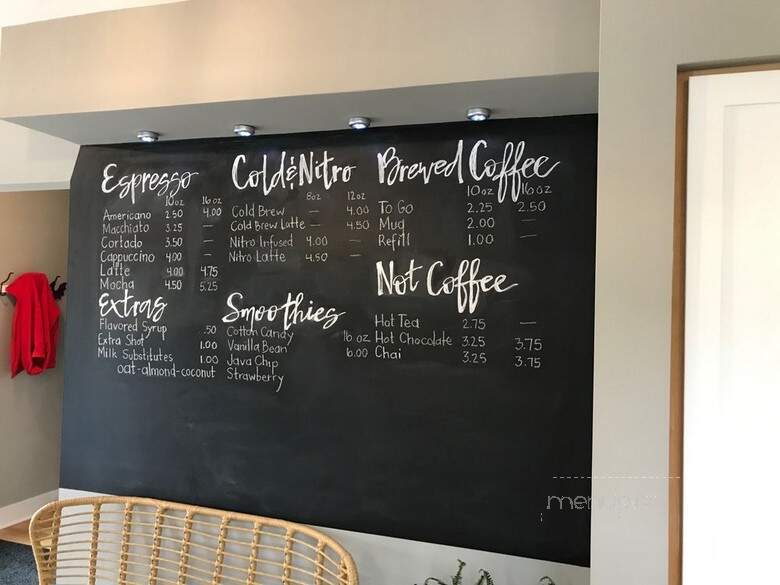 Espresso
10oz 16oz
Americano 2.50 4.00
Macchiato 3.25 —
Cortado 3.50 —
Cappuccino 4.00 —
Latte 4.00 4.75
Mocha 4.50 5.25
Extras
Flavored Syrup .50
Extra Shot 1.00
Milk Substitutes 1.00
oat-almond-coconut
Cold & Nitro
8oz 12oz
Cold Brew — 4.00
Cold Brew Latte — 4.50
Nitro Infused 4.00 —
Nitro Latte 4.50 —
Smoothies
Cotton Candy
Vanilla Bean 16oz
Java Chip 6.00
Strawberry
Brewed Coffee
10oz 16oz
To Go 2.25 2.50
Mug 2.00 —
Refill 1.00 —
Not Coffee
Hot Tea 2.75 —
Hot Chocolate 3.25 3.75
Chai 3.25 3.75